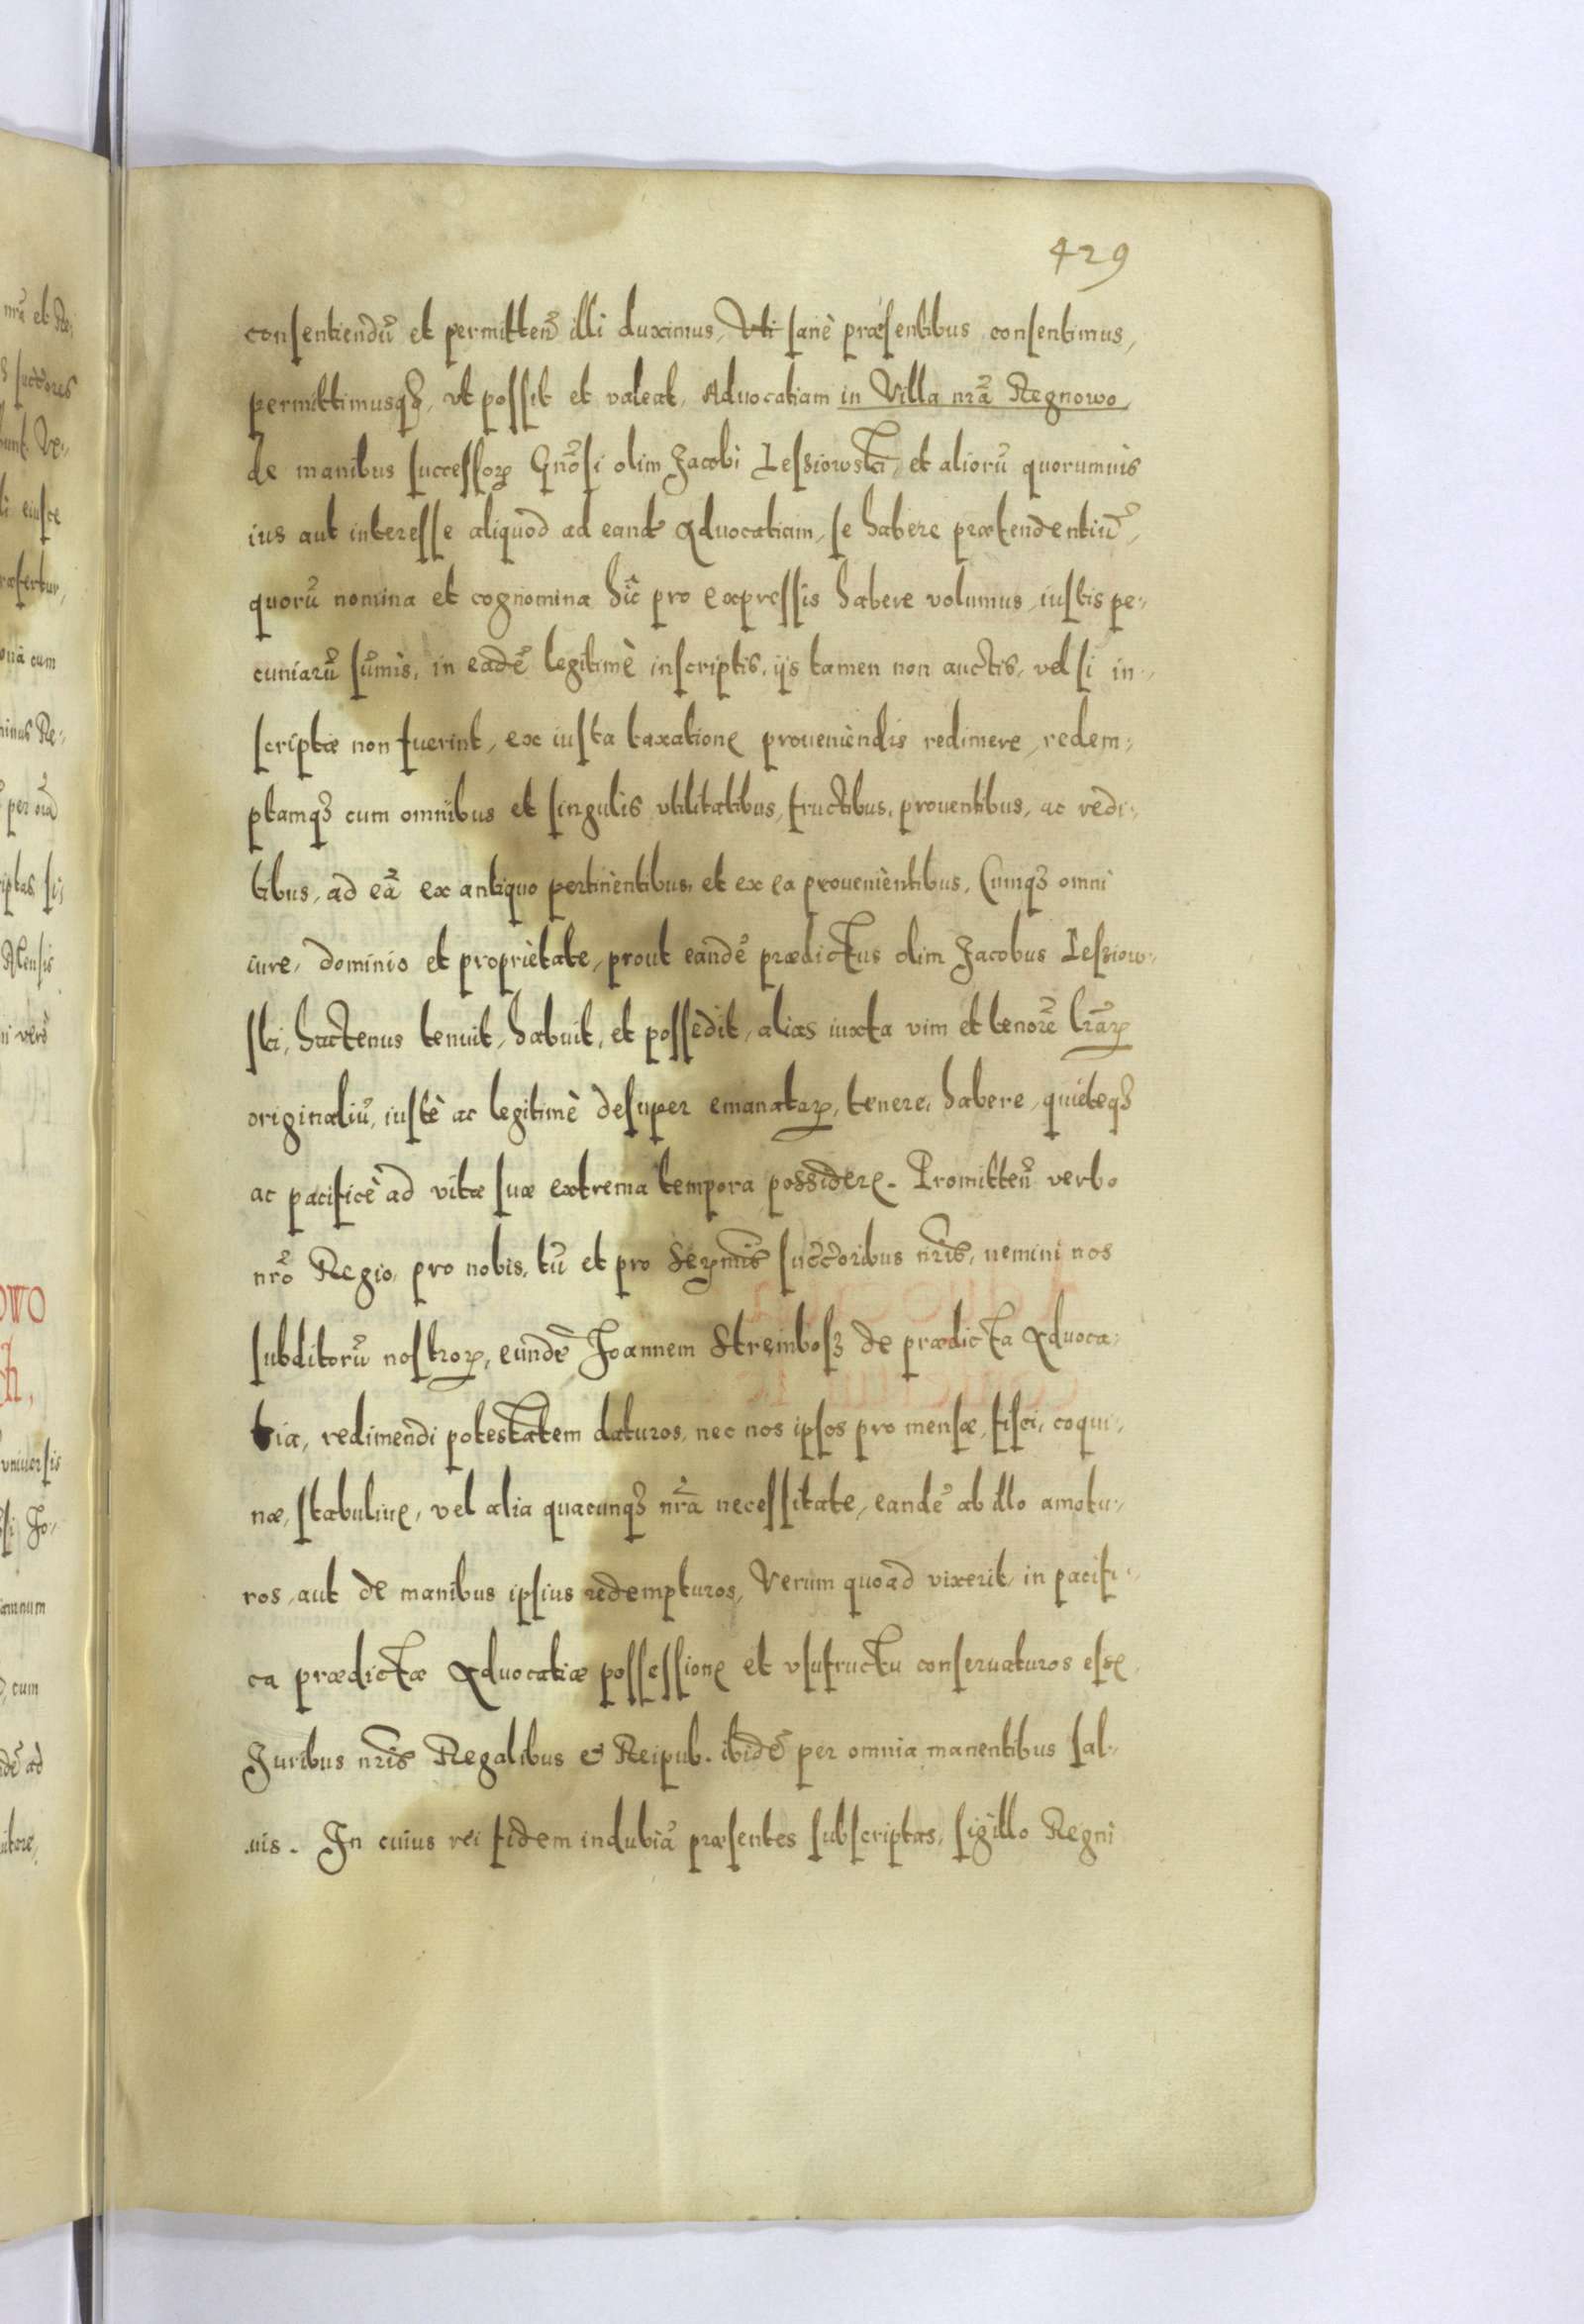 429
consentiendū et permitteñ illi duximus, Uti sanè præsentibus consentimus,
permittimusqꝫ, ut possit et valeat, Aduocatiam in Villa nrã Regnowo
de manibus successoꝝ Gnõsi olim Jacobi Lessiowski, et aliorũ quorumuis
ius aut interesse aliquod ad eandẽ Aduocatiam, se habere prætendentiũ,
quorũ nomina et cognomina hîc pro expressis habere volumus, iustis pe-
cuniarũ sũmis, in eadẽ legitimè inscriptis, ijs tamen non auctis, vel si in-
scriptæ non fuerint, ex iusta taxatione proueniendis redimere, redem-
ptamqꝫ cum omnibus et singulis utilitatibus, fructibus, prouentibus, ac redi-
tibus, ad eã ex antiquo pertinentibus, et ex ea prouenientibus, Cumqꝫ omni
iure, dominio et proprietate, prout eandẽ prædictus olim Jacobus Lessiow-
ski, hactenus tenuit, habuit, et possedit, alias iuxta vim et tenorẽ lrãꝝ
originaliũ, iustè ac legitimè desuper emanataꝝ, tenere, habere, quieteqꝫ
ac pacificè ad vitæ suæ extrema tempora possidere. Promitteñ verbo
nrõ Regio, pro nobis, tũ et pro Serꝫmis succ̃oribus nrĩs, nemini nos
subditorũ nostroꝝ, eundẽ Joannem Strembosz de prædicta Aduoca-
tia, redimendi potestatem daturos, nec nos ipsos pro mensæ, fisci, coqui-
næ, stabuliue, vel alia quacunqꝫ nrã necessitate, eandẽ ab illo amotu-
ros, aut de manibus ipsius redempturos, Verum quoad vixerit, in pacifi-
ca prædictæ Aduocatiæ possessione et vsufructu conseruaturos esse,
Juribus nrĩs Regalibus & Reipub. ibidẽ per omnia manentibus sal-
uis. In cuius rei fidem indubiã præsentes subscriptas, sigillo Regni